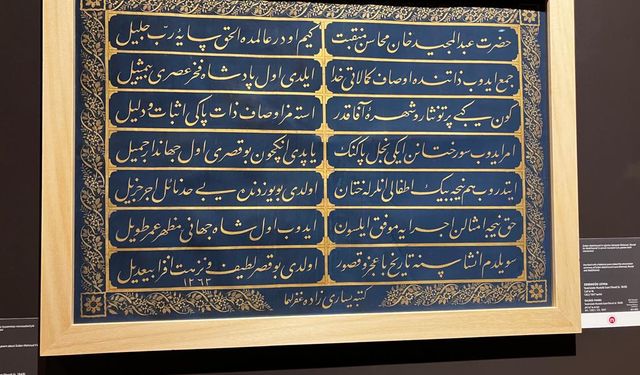 حضرت عبدالمجید خان محاسن منقبت كیم اودر عالمده الحق سایهٔ رب جلیل
جمع ایدوب ذاتنده اوصاف كمالاتی خدا ایلدی اول پادشاه فخر عصری بیمثیل
كون كبی پرتونثار و شهرهٔ آفاقدر استمز اوصاف ذات پاكی اثبات و دلیل
امر ایدوب سور ختانن ایكی نجل پاكنك یاپدی انكچون بو قصری اول جهاندار جمیل
ایتدروب هم نیجه بیك اطفالی انلرله ختان اولدی بو یوزدن بیحد نائل اجر جزیل
حق نیجه امثالن اجرایه موفق ایلسون ایدوب اول شاه جهانی مظهر عمر طویل
سویلدم انشاسنه تاریخ با عجز و قصور اولدی بو قصر لطیف و نزهت افزا بیعدیل
١٢٦٣
كتبه یساری زاده غفر لهما